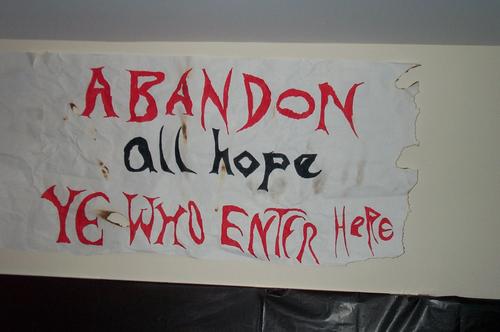 ABANDON
all hope
YE WHO ENTER HERE